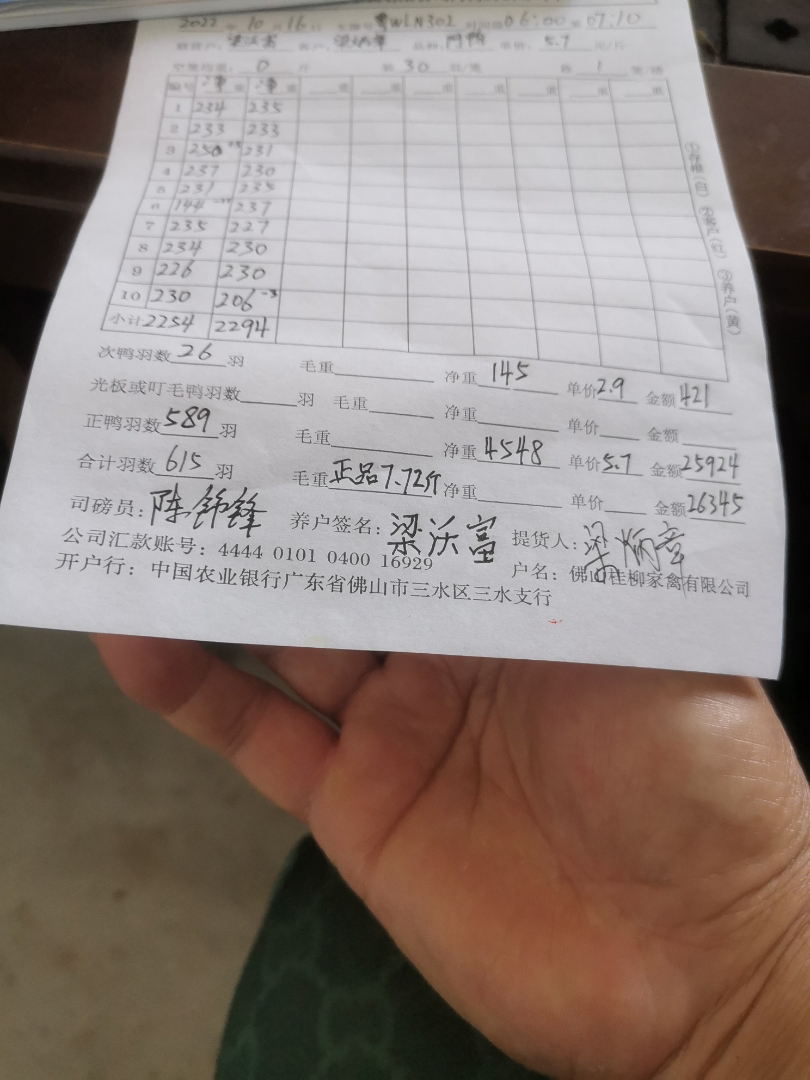 2022年10月16日 车牌号粤WLN302 时间段06:00至07:10
梁沃富 客户：梁炳章 品种： 单价：5.7 元/斤
0 斤 装30羽/笼 1
编号 净重 净重
1 234 235
2 233 233
3 250 231
4 237 230
5 231 235
6 144 237
7 235 227
8 234 230
9 226 230
10 230 206⁻³
小计 2254 2294
①存根（白）②客户（红）③养户（黄）
次鸭羽数 26 羽 毛重 净重 145 单价2.9 金额421
光板或叮毛鸭羽数 羽 毛重 净重 单价 金额
正鸭羽数589羽 毛重 净重4548 单价5.7 金额25924
合计羽数615羽 毛重正品7.72斤 净重 单价 金额26345
司磅员：陈锦锋 养户签名：梁沃富 提货人：梁炳章
公司汇款账号：4444 0101 0400 16929 户名：佛山桂柳家禽有限公司
开户行：中国农业银行广东省佛山市三水区三水支行